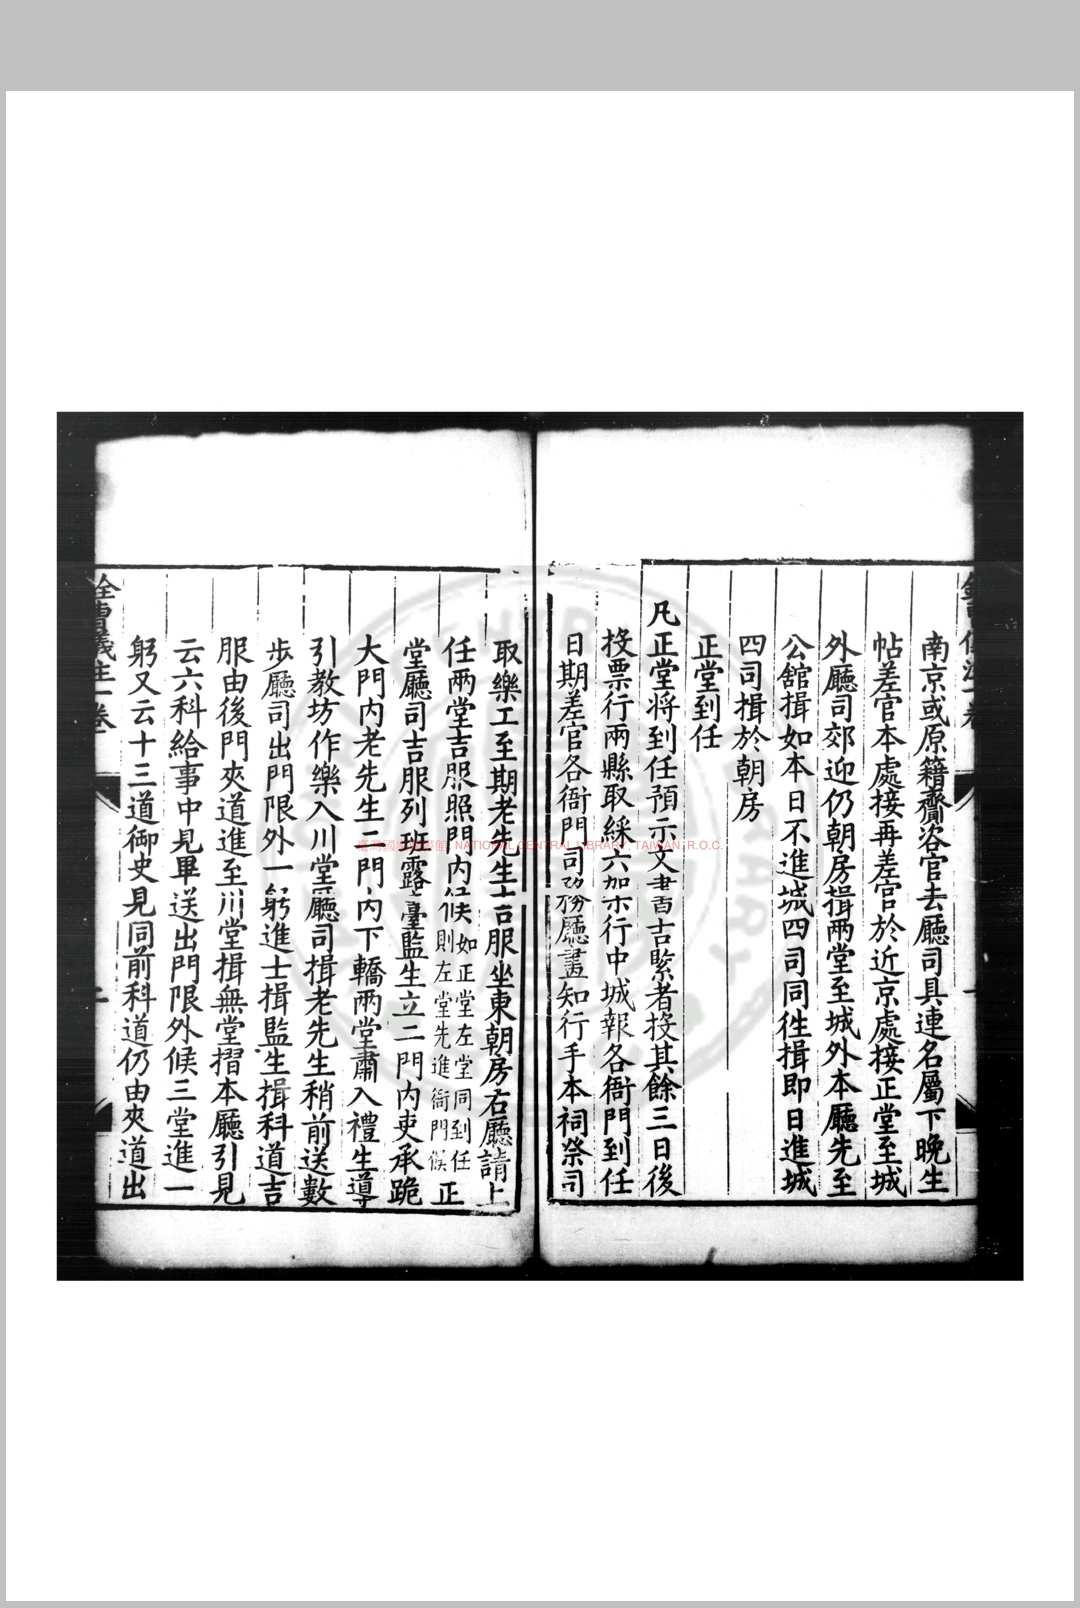 南京或原籍齎咨官去廳司具連名屬下晚生
帖差官本處接再差官於近京處接正堂至城
外廳司郊迎仍朝房揖兩堂至城外本廳先至
公舘揖如本日不進城四司同徃揖即日進城
四司揖於朝房
正堂到任
凡正堂将到任預示文書吉緊者投其餘三日後
投票行兩縣取綵六架示行中城報各衙門到任
日期差官各衙門司務廳畫知行手本祠祭司
取樂工至期老先生吉服坐東朝房右廳請上
任兩堂吉服照門内候如正堂左堂同到任則左堂先進衙門候正
堂廳司吉服列班露臺監生立二門内吏承跪
大門内老先生二門内下轎兩堂肅入禮生導
引教坊作樂入川堂廳司揖老先生稍前送數
步廳司出門限外一躬進士揖監生揖科道吉
服由後門夾道進至川堂揖無堂摺本廳引見
云六科給事中見畢送出門限外候三堂進一
躬又云十三道御史見同前科道仍由夾道出
銓曹儀注一卷
二
NATIONAL CENTRAL LIBRARY, TAIWAN, R.O.C.